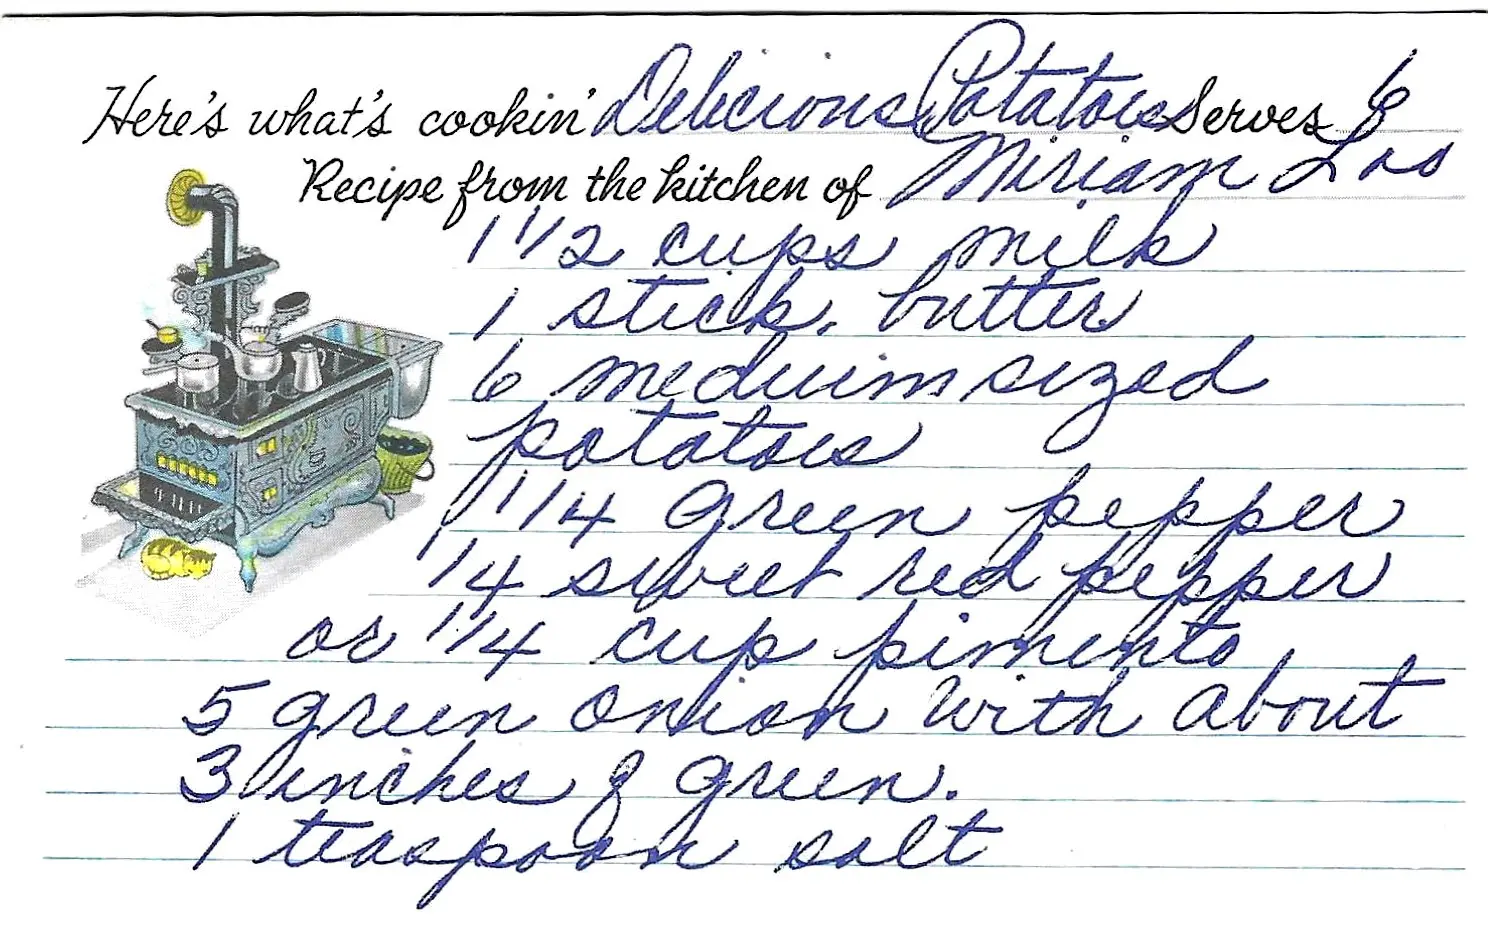 Here's what's cookin' Delicious Potatoes Serves 6
Recipe from the kitchen of Miriam Loo
1 1/2 cups milk
1 stick. butter
6 meduim sized
potatoes
1/4 green pepper
1/4 sweet red pepper
or 1/4 cup pimento
5 green onion with about
3 inches of green.
1 teaspoon salt